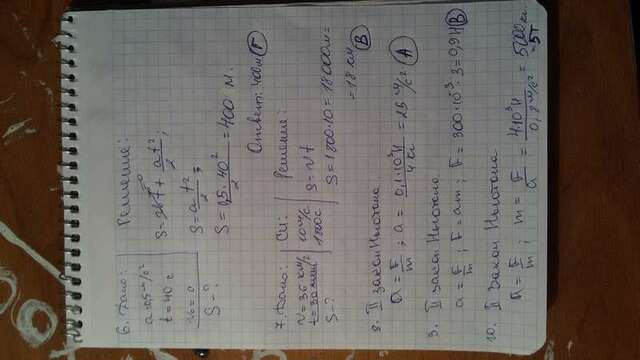 6. Дано:
a=0,5 м/с²
t=40 с
v₀=0
S-?
Решение:
S=v₀t+at²/2;
S=at²/2;
S=0,5·40²/2=400 м.
Ответ: 400м (Г)
7. Дано:
v=36 км/ч
t=30 мин
S-?
Си:
10 м/с
1800с
Решение:
S=vt
S=1800·10=18000м=
=18 км (В)
8. II Закон Ньютона
a=F/m; a=0,1·10³Н/4 кг=25 м/с² (А)
9. II Закон Ньютона
a=F/m; F=am; F=300·10⁻³·3=0,9Н (В)
10. II Закон Ньютона
a=F/m; m=F/a=4·10³Н/0,8 м/с²=5000кг
=5т